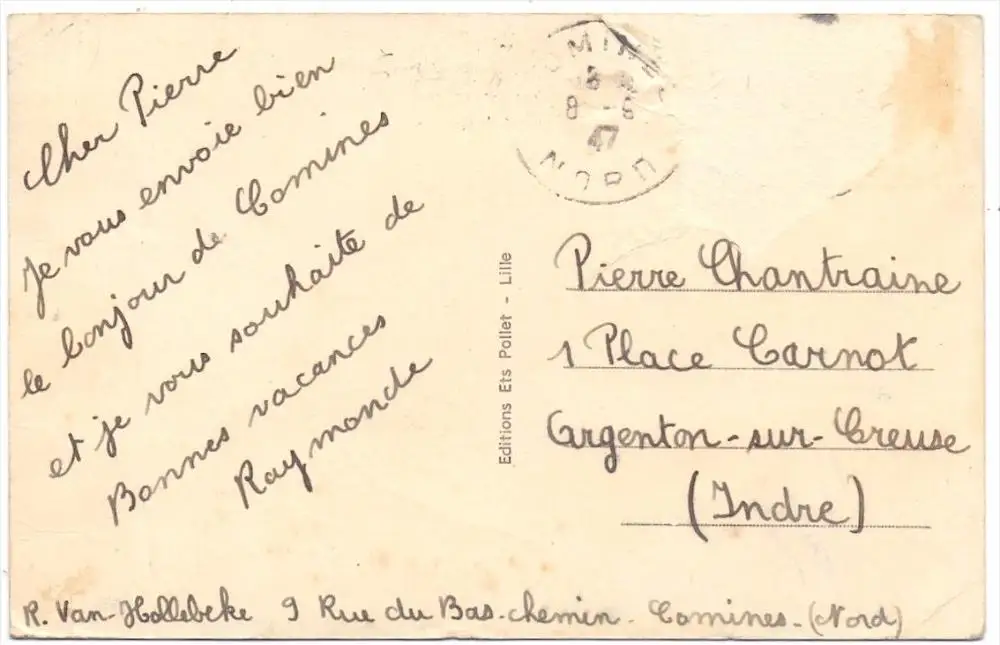 Cher Pierre
Je vous envoie bien
le bonjour de Comines
et je vous souhaite de
Bonnes vacances
Raymonde
NORD
8 - 8
47
Editions Ets Pollet - Lille
Pierre Chantraine
1 Place Carnot
Argenton-sur-Creuse
(Indre)
R. Van-Hollebeke 9 Rue du Bas-chemin. Comines-(Nord)